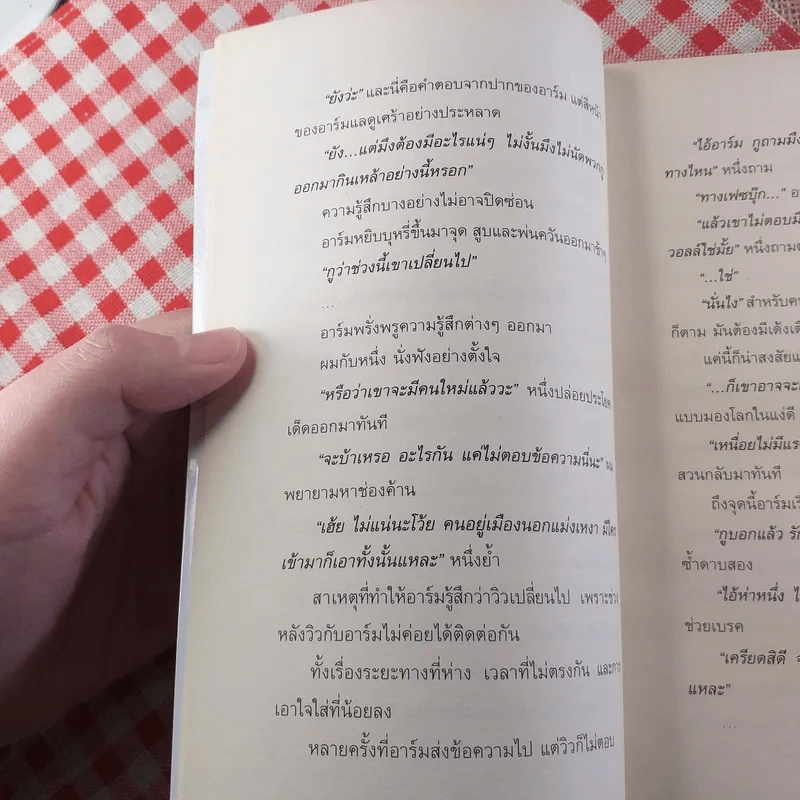 “ยังว่ะ” และนี่คือคำตอบจากปากของอาร์ม แต่สีหน้า
ของอาร์มแลดูเศร้าอย่างประหลาด
“ยัง...แต่มึงต้องมีอะไรแน่ๆ ไม่งั้นมึงไม่นัดพวกกู
ออกมากินเหล้าอย่างนี้หรอก”
ความรู้สึกบางอย่างไม่อาจปิดซ่อน
อาร์มหยิบบุหรี่ขึ้นมาจุด สูบและพ่นควันออกมาช้าๆ
“กูว่าช่วงนี้เขาเปลี่ยนไป”
...
อาร์มพรั่งพรูความรู้สึกต่างๆ ออกมา
ผมกับหนึ่ง นั่งฟังอย่างตั้งใจ
“หรือว่าเขาจะมีคนใหม่แล้ววะ” หนึ่งปล่อยประโยค
เด็ดออกมาทันที
“จะบ้าเหรอ อะไรกัน แค่ไม่ตอบข้อความนี่นะ” ผม
พยายามหาช่องค้าน
“เฮ้ย ไม่แน่นะโว้ย คนอยู่เมืองนอกแม่งเหงา มีใคร
เข้ามาก็เอาทั้งนั้นแหละ” หนึ่งย้ำ
สาเหตุที่ทำให้อาร์มรู้สึกว่าวิวเปลี่ยนไป เพราะช่วง
หลังวิวกับอาร์มไม่ค่อยได้ติดต่อกัน
ทั้งเรื่องระยะทางที่ห่าง เวลาที่ไม่ตรงกัน และการ
เอาใจใส่ที่น้อยลง
หลายครั้งที่อาร์มส่งข้อความไป แต่วิวก็ไม่ตอบ
“ไอ้อาร์ม กูถามมึง
ทางไหน” หนึ่งถาม
“ทางเฟซบุ๊ก...”
“แล้วเขาไม่ตอบมึ
วอลล์ใช่มั้ย” หนึ่งถาม
“...ใช่”
“นั่นไง” สำหรับ
ก็ตาม มันต้องมีเด้ง
แค่นี้ก็น่าสงสัย
“...ก็เขาอาจจะ
แบบมองโลกในแง่ดี
“เหนื่อยไม่มีแร
สวนกลับมาทันที
ถึงจุดนี้อาร์มเริ
“กูบอกแล้ว รั
ซ้ำดาบสอง
“ไอ้ห่าหนึ่ง
ช่วยเบรค
“เครียดสิดี
แหละ”
...